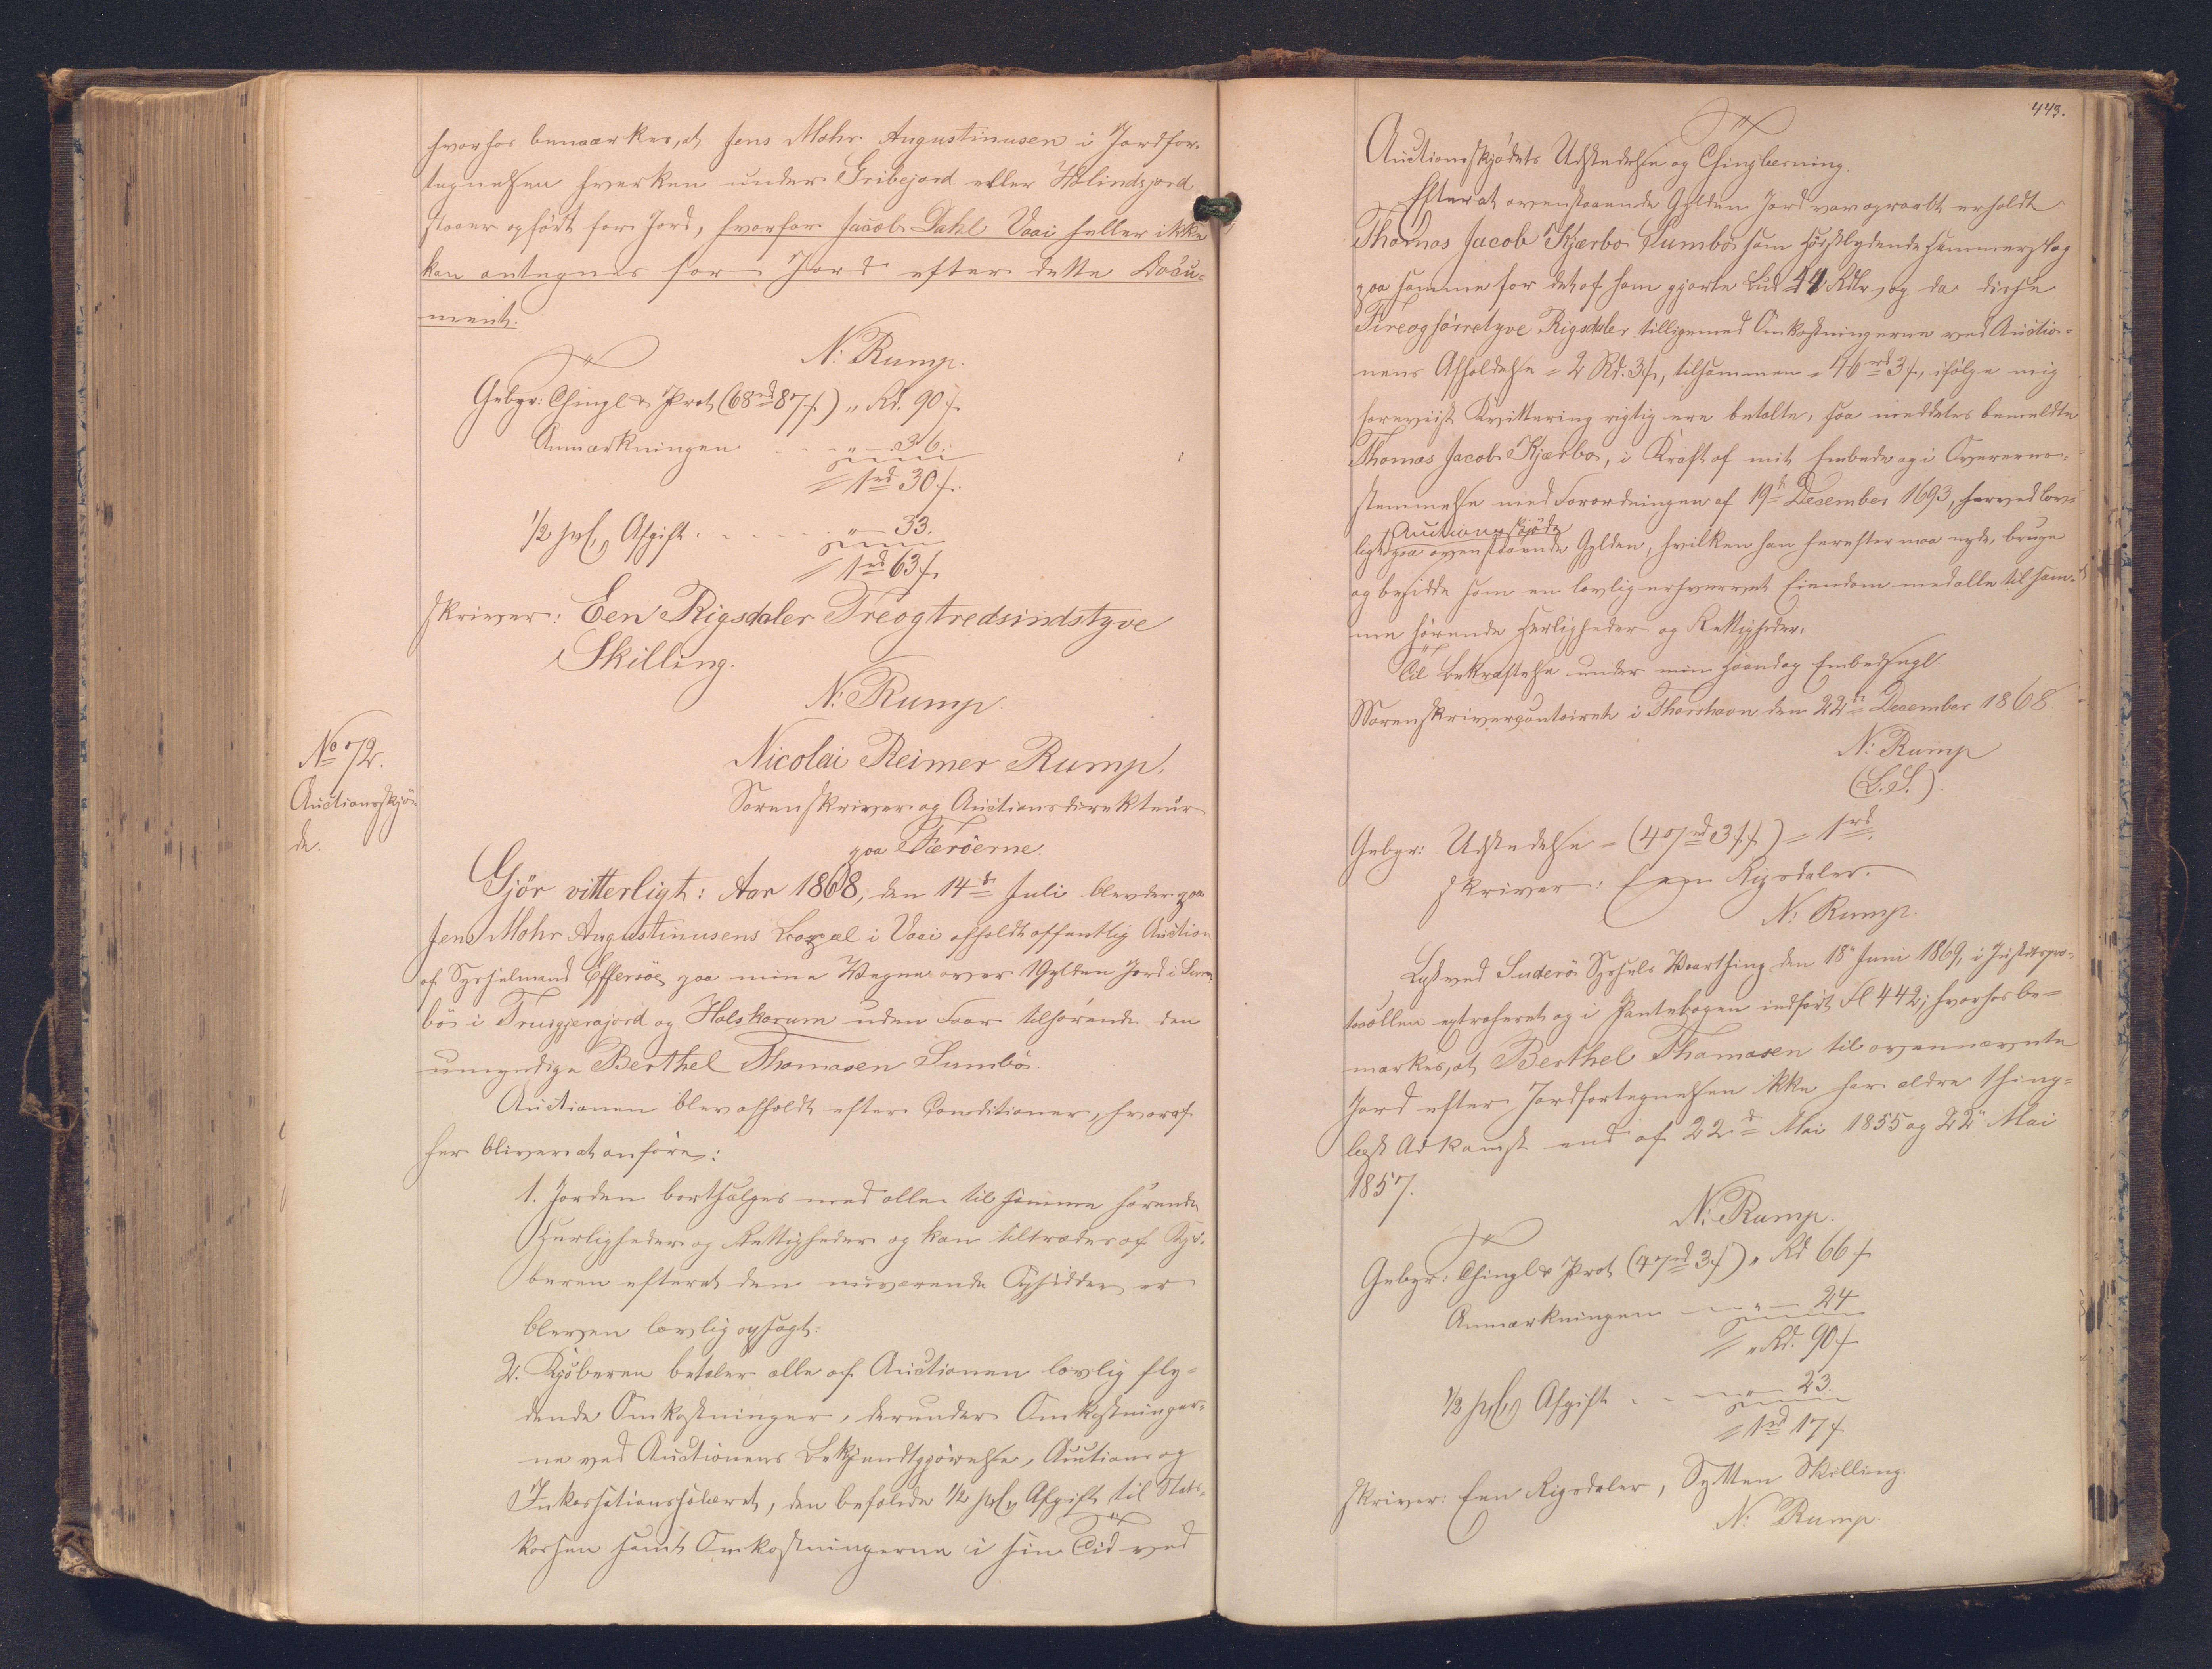 hvorhos bemærkes, at Jens Mohr Augustinusen i Jordfor-
tegnelsen hverken under Gribejord eller Hølindsjord
staaer opført for Jord, hvorfor Jacob Dahl Vaai heller ikke
kan antegnes for Jord efter dette Docu-
ment.
N. Rump.
Gebyr: Thingl & Prot (68rd 87s) " Rd. 90 s.
Anmærkningen . . . " — 36.
= 1rd 30 s.
1/2 pCt Afgift . . . . . " — 33.
= 1rd 63 s.
skriver: Een Rigsdaler Treogtredsindstyve
Skilling.
N. Rump.
No 72.
Auctionsskjø-
de.
Nicolai Reimer Rump,
Sorenskriver og Auctionsdirekteur
paa Færøerne.
Gjör vitterligt: Aar 1868, den 14de Juli blev der paa
Jens Mohr Augustinusens Bopæl i Vaai afholdt offentlig Auction
af Sysselmand Effersöe paa mine Vegne over 1 Gylden Jord i Sum-
bö i Truigjerajord og Halskarum uden Faar tilhørende den
umyndige Berthel Thomasen Sumbö.
Auctionen blev afholdt efter Conditioner, hvoraf
her bliver at anføre:
1. Jorden bortsælges med alle til samme hørende
Herligheder og Rettigheder og kan tiltrædes af Kjø-
beren efterat den nuværende Opsidder er
bleven lovlig opsagt:
2. Kjøberen betaler alle af Auctionen lovlig fly-
dende Omkostninger, derunder Omkostninger-
ne ved Auctionens Bekjendtgjørelse, Auctions og
Inkassationssalæret, den befalede 1/2 pCt Afgift til Stats-
kassen samt Omkostningerne i sin Tid ved
443.
Auctionsskjødets Udstedelse og Thinglæsning.
Efterat ovenstaaende Gylden Jord var opraabt erholdt
Thomas Jacob Kjærbo Sumbö som høistbydende Hammerslag
paa samme for det af ham gjorte Bud 44 Rdlr, og da disse
Fireogförretyve Rigsdaler tilligemed Omkostningerne ved Auctio-
nens Afholdelse = 2 Rd. 3 s, tilsammen = 46rd 3 s, ifølge mig
foreviist Kvittering rigtig ere betalte, saa meddeles bemeldte
Thomas Jacob Kjærbo, i Kraft af mit Embede og i Overeens-
stemmelse med Forordningen af 19de December 1693, herved lov-
ligt Auctionsskjøde paa ovenstaaende Gylden, hvilken han herefter maa nyde, bruge
og besidde som en lovlig erhvervet Eiendom med alle til sam-
me hørende Herligheder og Rettigheder.
Til Bekræftelse under min Haand og Embedssegl.
Sorenskrivercontoiret i Thorshavn den 22de December 1868.
N. Rump
(L.S.).
Gebyr: Udstedelse = (47rd 3 s) = 1rd.
skriver: Een Rigsdaler.
N. Rump.
Læst ved Suderö Syssels Vaarthing den 18de Juni 1869, i Justitspro-
tocollen extraheret og i Pantebogen indført Fl 442; hvorhos be-
mærkes, at Berthel Thomasen til ovennævnte
Jord efter Jordfortegnelsen ikke har ældre thing-
læst Adkomst end af 22de Mai 1855 og 22de Mai
1857.
N. Rump.
Gebyr: Thingl & Prot (47rd 3 s) " Rd 66 s
Anmærkningen — " — 24
= " Rd. 90 s
1/2 pCt Afgift . . — " — 23.
= 1rd 17 s
skriver: Een Rigsdaler, Sytten Skilling.
N. Rump.